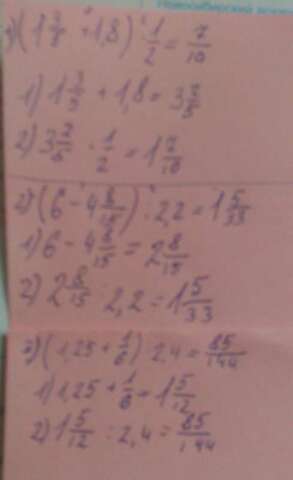 Новосибирский
(1 3/5 + 1,8) · 1/2 = 7/10
1) 1 3/5 + 1,8 = 3 2/5
2) 3 2/5 · 1/2 = 1 7/10
2) (6 - 4 8/15) : 2,2 = 1 5/33
1) 6 - 4 8/15 = 2 8/15
2) 2 8/15 : 2,2 = 1 5/33
3) (1,25 + 1/6) : 2,4 = 85/144
1) 1,25 + 1/6 = 1 5/12
2) 1 5/12 : 2,4 = 85/144